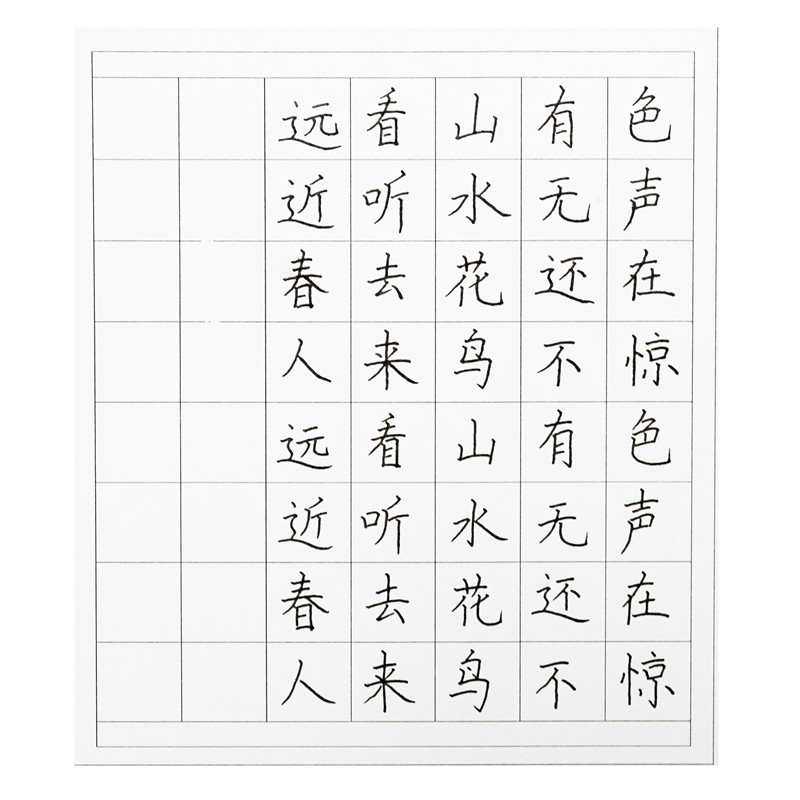 远看山有色
近听水无声
春去花还在
人来鸟不惊
远看山有色
近听水无声
春去花还在
人来鸟不惊